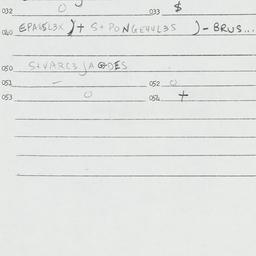 032 0 033 $
040 EPAUSL3X ) + S+PONGEHVL3S ) - BRUS...
050 S+VARC3JAGDES
051 - 052 0
053 0 054 +